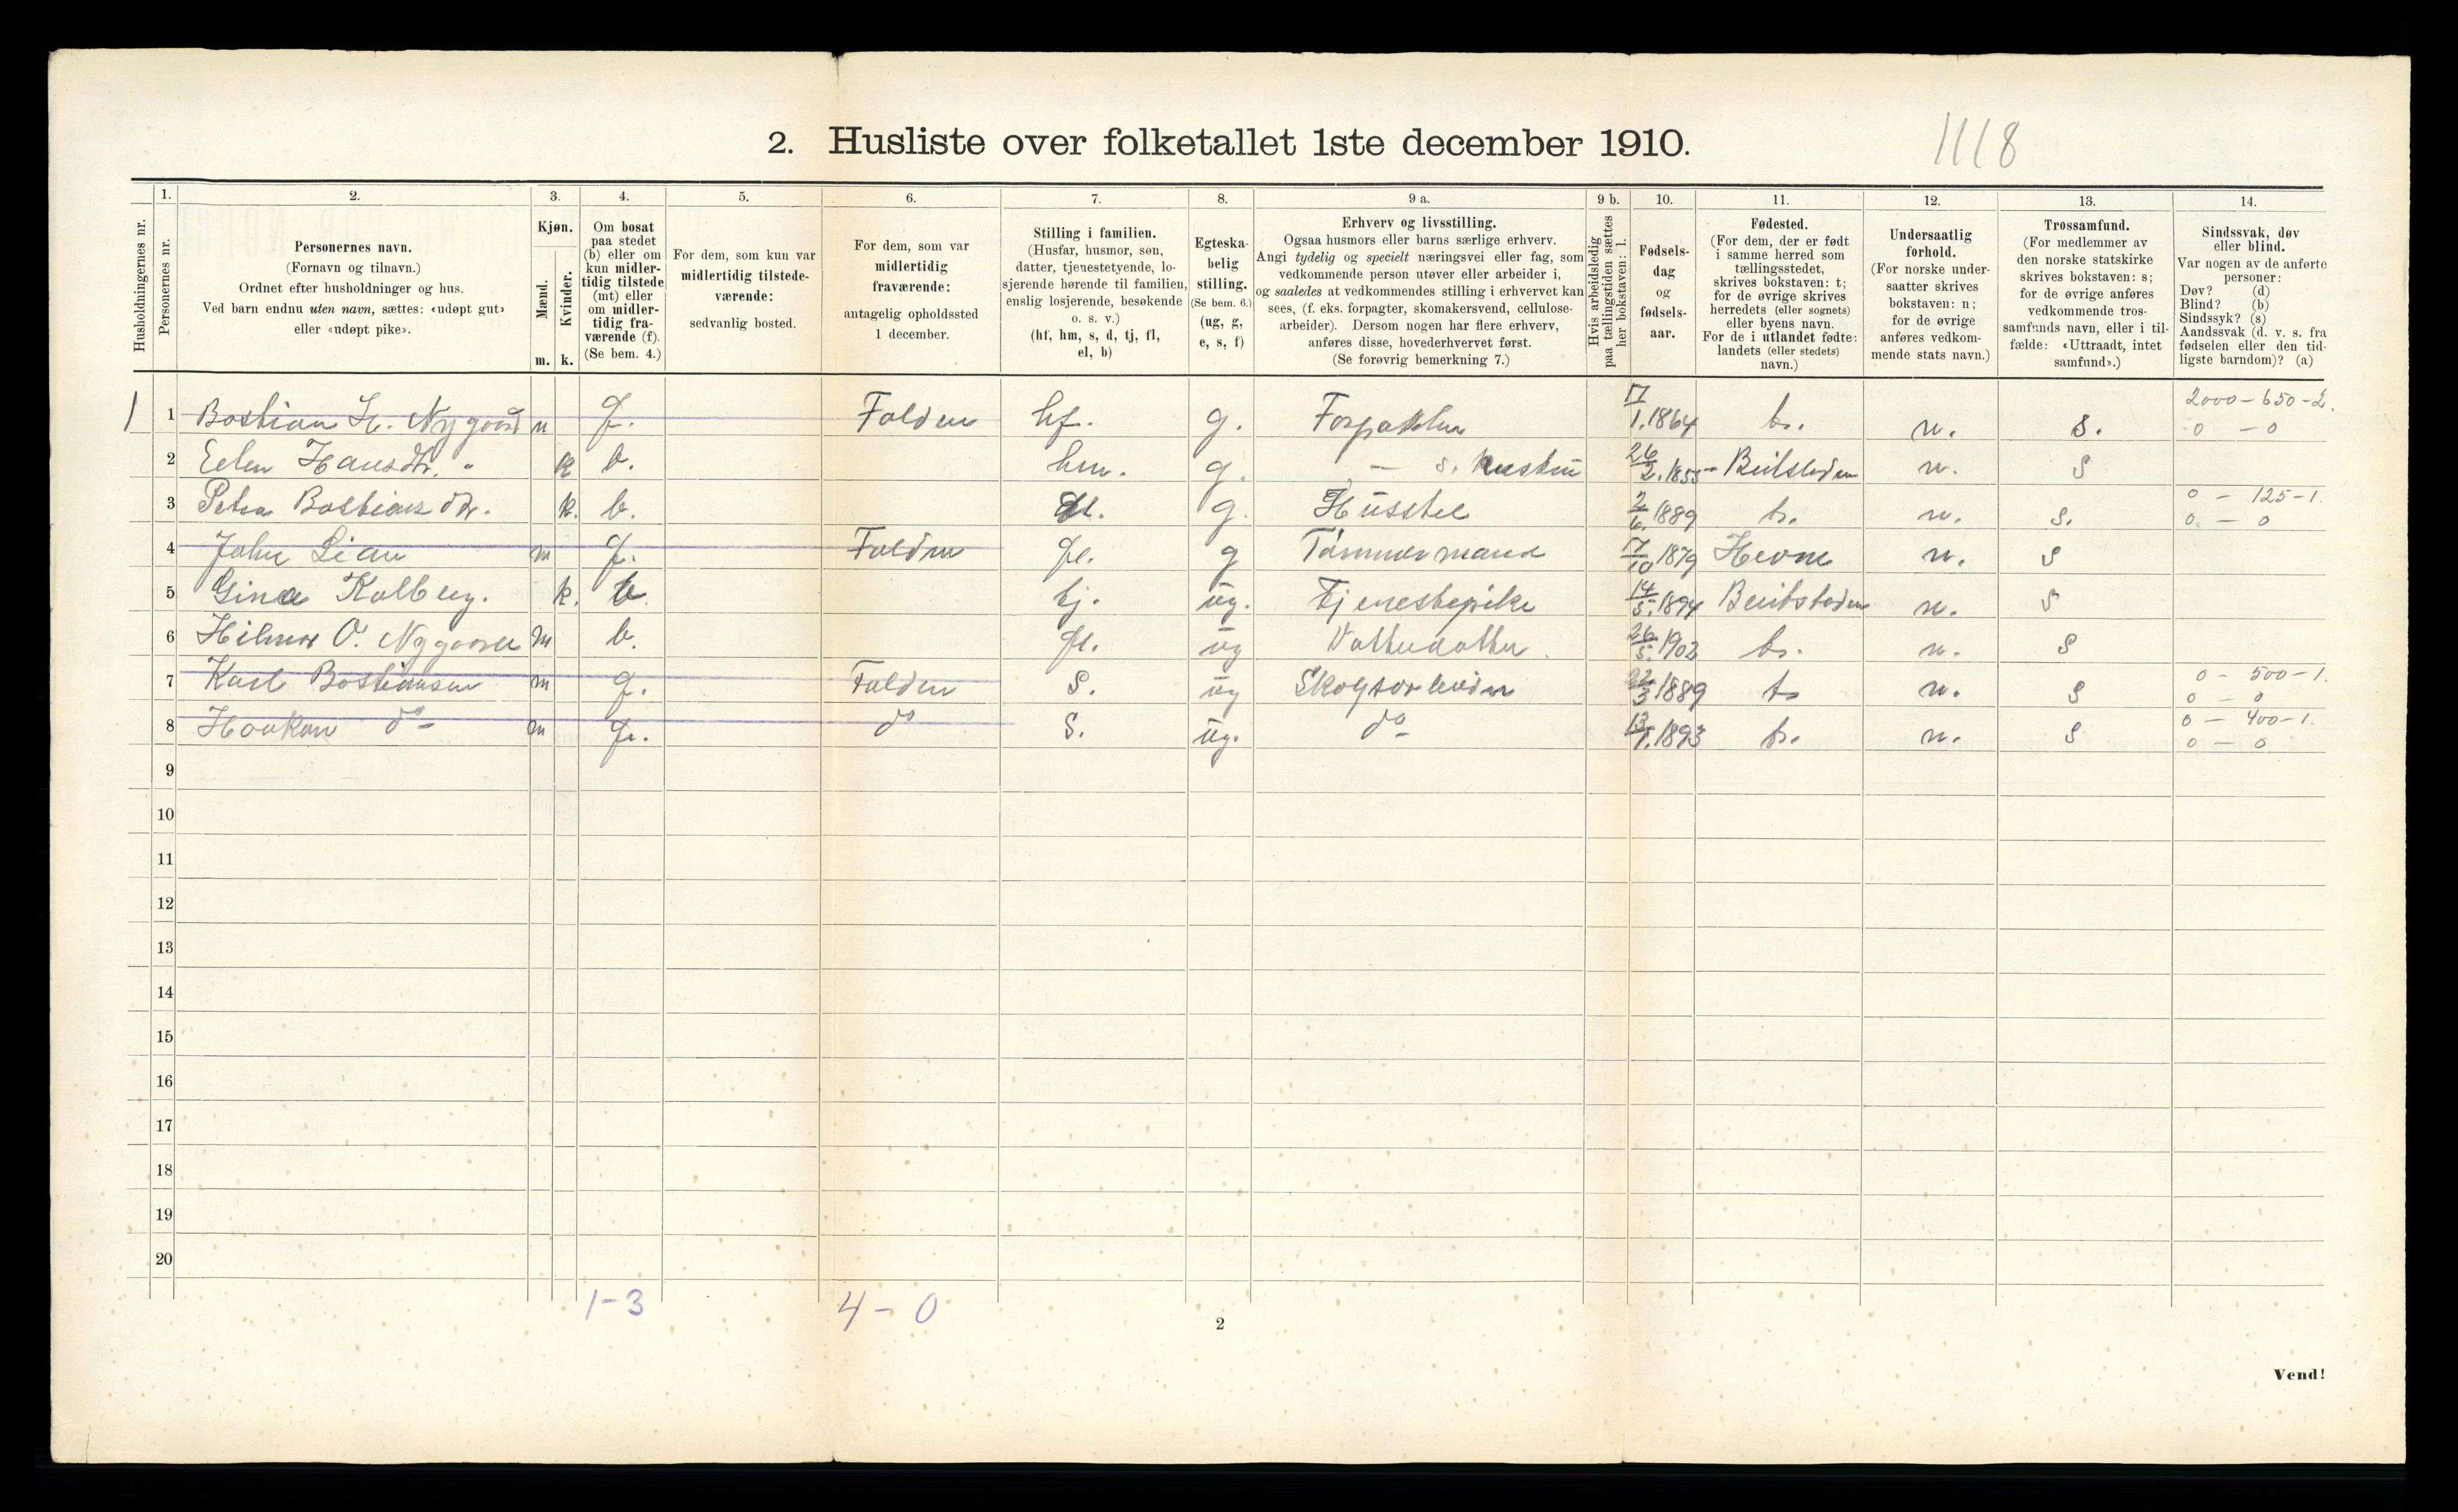 2. Husliste over folketallet 1ste december 1910.
1118
Husholdningernes nr.
1. Personernes nr.
2. Personernes navn. (Fornavn og tilnavn.) Ordnet efter husholdninger og hus. Ved barn endnu uten navn, sættes: «udøpt gut» eller «udøpt pike».
3. Kjøn. Mænd. m. Kvinder. k.
4. Om bosat paa stedet (b) eller om kun midlertidig tilstede (mt) eller om midlertidig fraværende (f). (Se bem. 4.)
5. For dem, som kun var midlertidig tilstedeværende: sedvanlig bosted.
6. For dem, som var midlertidig fraværende: antagelig opholdssted 1 december.
7. Stilling i familien. (Husfar, husmor, søn, datter, tjenestetyende, losjerende hørende til familien, enslig losjerende, besøkende o. s. v.) (hf, hm, s, d, tj, fl, el, b)
8. Egteskabelig stilling. (Se bem. 6.) (ug, g, e, s, f)
9 a. Erhverv og livsstilling. Ogsaa husmors eller barns særlige erhverv. Angi tydelig og specielt næringsvei eller fag, som vedkommende person utøver eller arbeider i, og saaledes at vedkommendes stilling i erhvervet kan sees, (f. eks. forpagter, skomakersvend, cellulosearbeider). Dersom nogen har flere erhverv, anføres disse, hovederhvervet først. (Se forøvrig bemerkning 7.)
9 b. Hvis arbeidsledig paa tællingstiden sættes her bokstaven: l.
10. Fødselsdag og fødselsaar.
11. Fødested. (For dem, der er født i samme herred som tællingsstedet, skrives bokstaven: t; for de øvrige skrives herredets (eller sognets) eller byens navn. For de i utlandet fødte: landets (eller stedets) navn.)
12. Undersaatlig forhold. (For norske undersaatter skrives bokstaven: n; for de øvrige anføres vedkommende stats navn.)
13. Trossamfund. (For medlemmer av den norske statskirke skrives bokstaven: s; for de øvrige anføres vedkommende trossamfunds navn, eller i tilfælde: «Uttraadt, intet samfund».)
14. Sindssvak, døv eller blind. Var nogen av de anførte personer: Døv? (d) Blind? (b) Sindssyk? (s) Aandssvak (d. v. s. fra fødselen eller den tidligste barndom)? (a)
1 1 Bostian H. Nygaard m f. Folden hf. g. 17/1.1864 t. n. s. 2000-650-2. 0 - 0
2 Hansdtr. " k b. hm. g. - s. hustru 26/2. Beitstaden n. s
3 Petra Bostians dtr. k. b. fl. g. Husstel 2/6.1889 t. n. s. 0 - 125-1. 0 - 0
4 John Lian m f. Folden fl. g Tømmermand 17/10 1879 Hevne n. s
5 Gina Kolberg. k. b tj. ug. Tjenestepike 14/5.1894 Beitstaden n. s
6 Hilmar O. Nygaard m b. fl. ug 26/5.1902 t. n. s
7 Karl Bostiansen m f. Folden s. ug Skogsarbeider 22/3 1889 t n. s 0 - 500-1. 0 - 0
8 Haakon do- m f. do s. ug. do- 1893 t. n. s 0 - 400-1. 0 - 0
9
10
11
12
13
14
15
16
17
18
19
20
1-3 4-0
2
Vend!